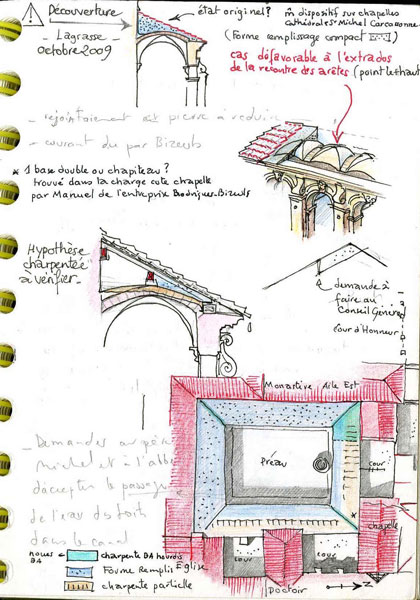 Découverture
- Lagrasse
octobre 2009
état originel?
m̄ dispositif sur chapelles
cathédrale St Michel Carcassonne
(Forme remplissage compact)
cas défavorable à l'extrados
de la rencontre des arêtes (point le + haut
- rejointoiement et pierre à réduire
- courant du par Bizeuls
* 1 base double ou chapiteau?
trouvé dans la charge cote chapelle
par Manuel de l'entreprise Rodrigues-Bizeuls
Hypothèse
charpentée
a vérifier -
demande à
faire au
Conseil General
Cour d'Honneur
Monastère Aile Est
Préau
cour
chapelle
- Demandes au père
michel et à l'abbé
d'accepter le passage
de l'eau des toits
dans le canal
Eglise
cour
cour
Dortoir
N
noues BA
charpente BA hourdis
Forme Remplis
charpente partielle